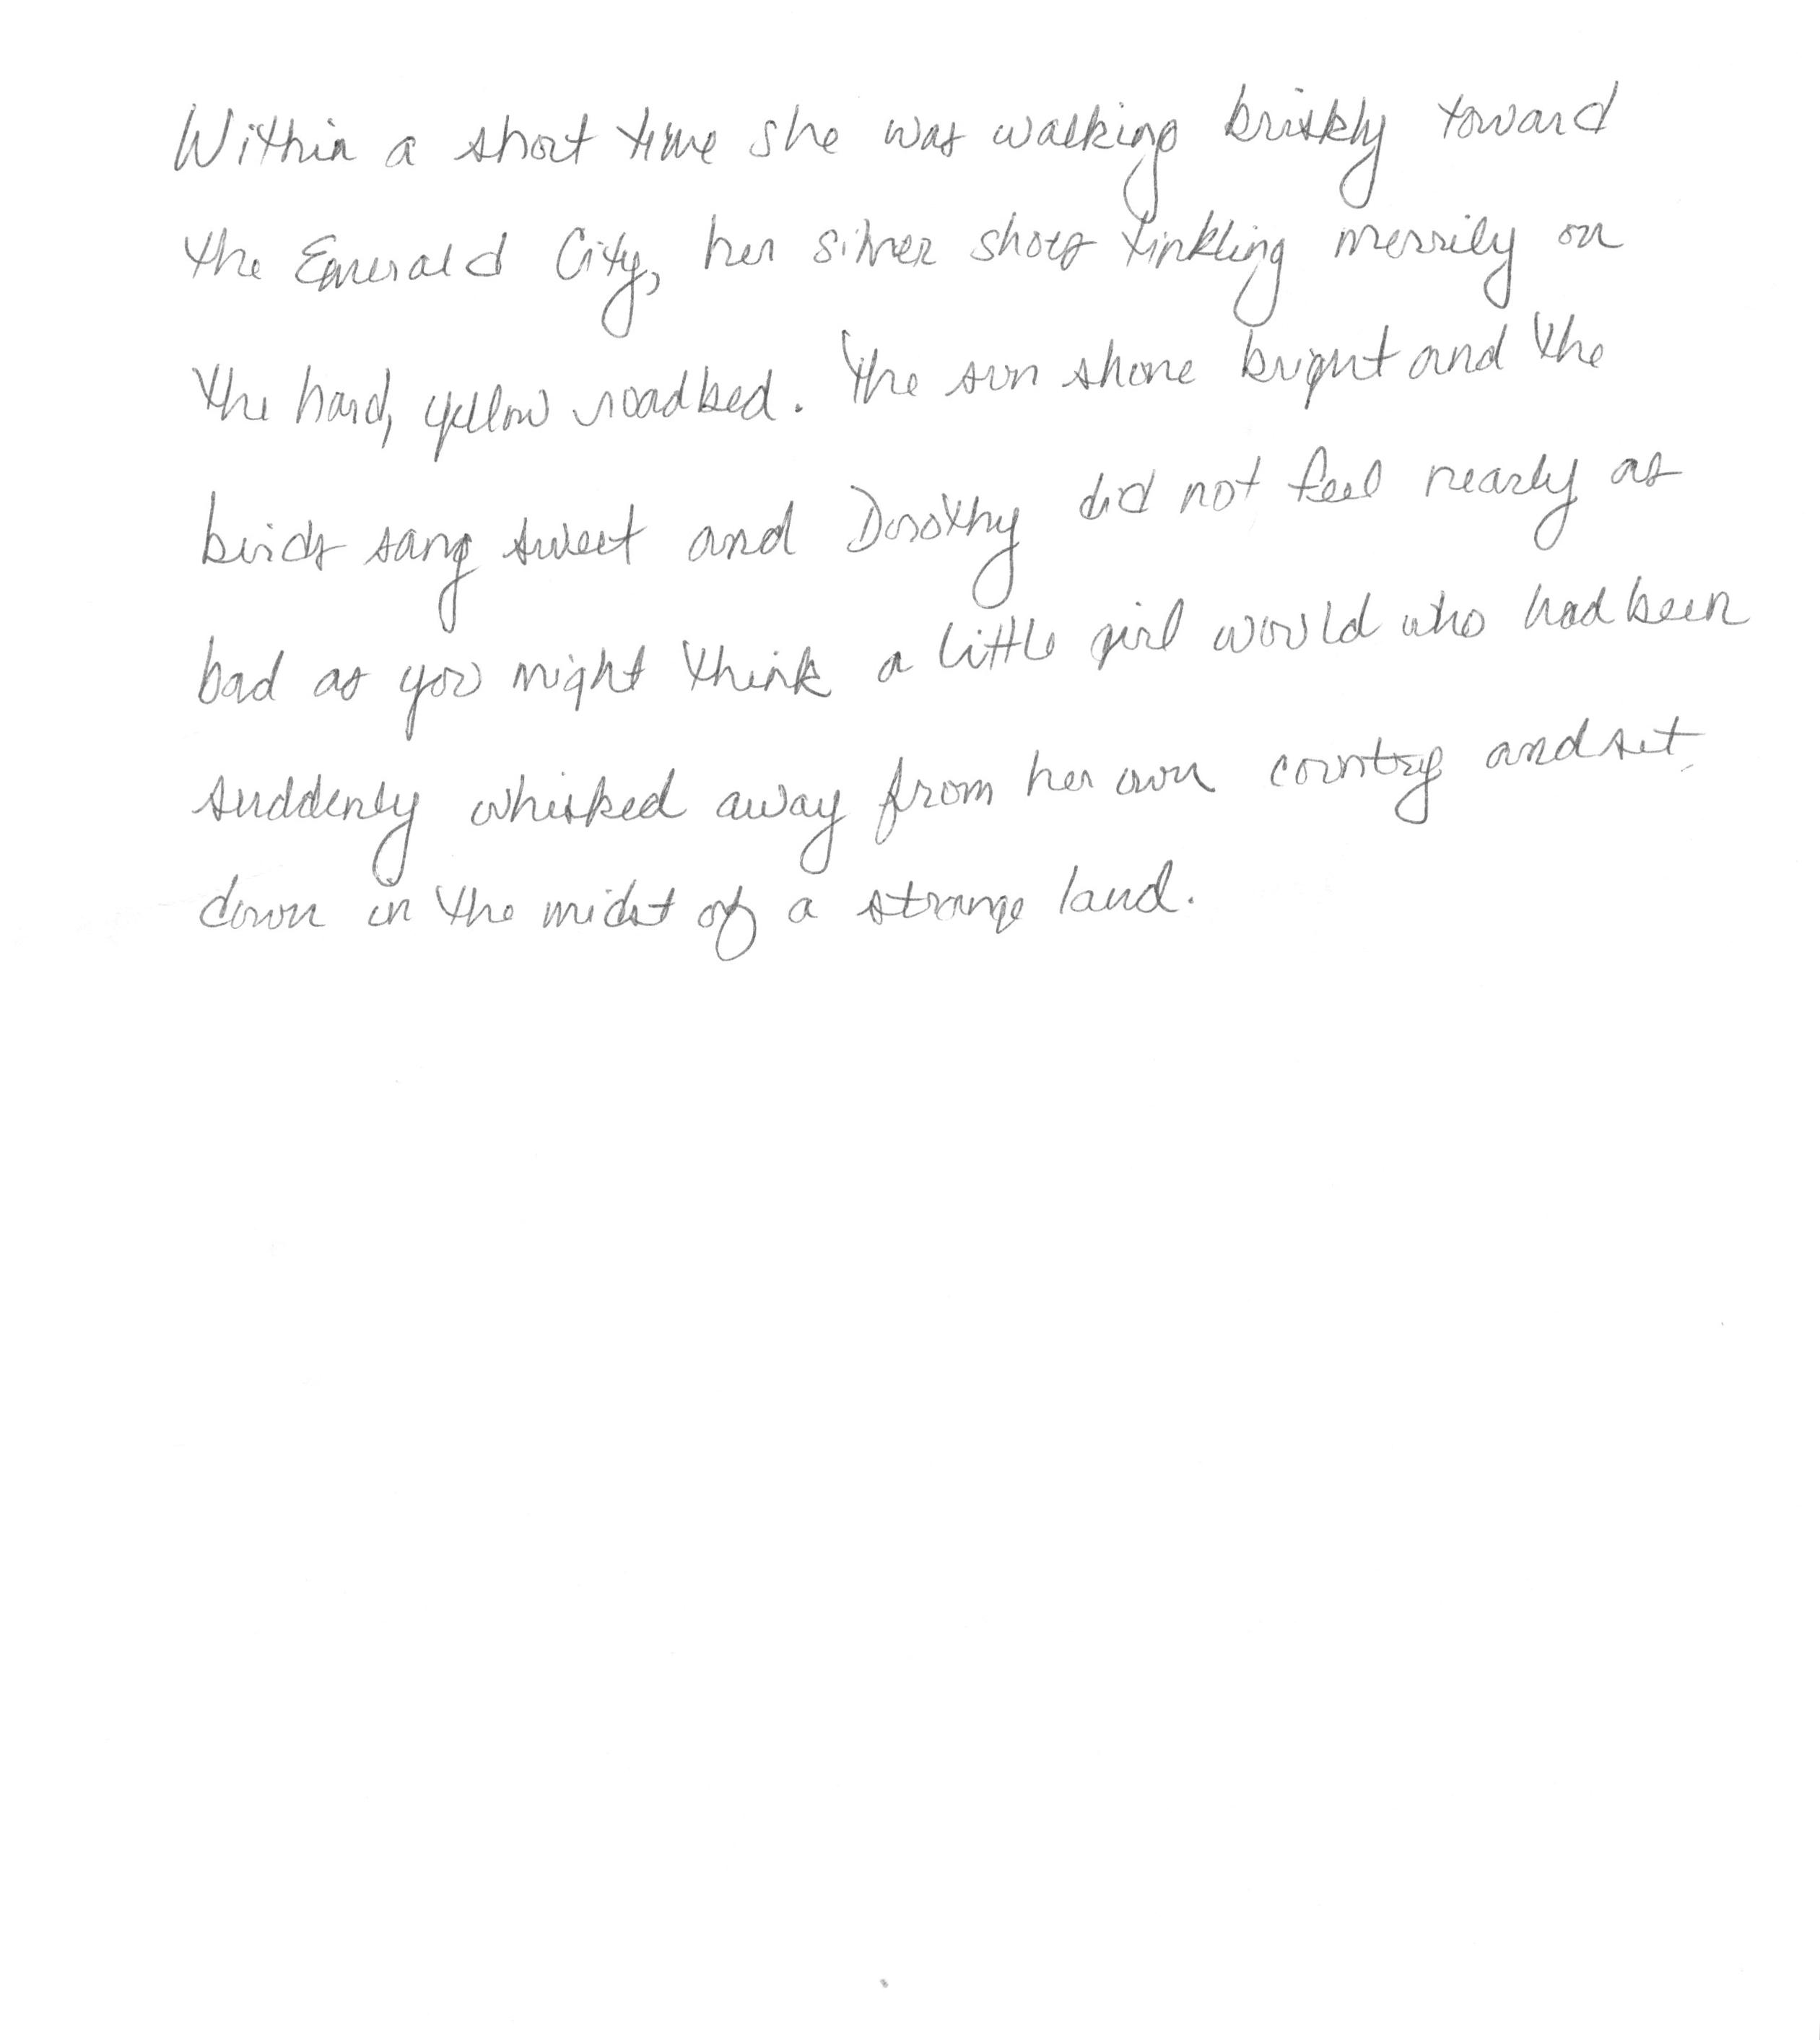 Within a short time she was walking briskly toward
the Emerald City, her silver shoes tinkling merrily on
the hard, yellow roadbed. The sun shone bright and the
birds sang sweet and Dorothy did not feel nearly as
bad as you might think a little girl would who had been
suddenly whisked away from her own country and set
down in the midst of a strange land.